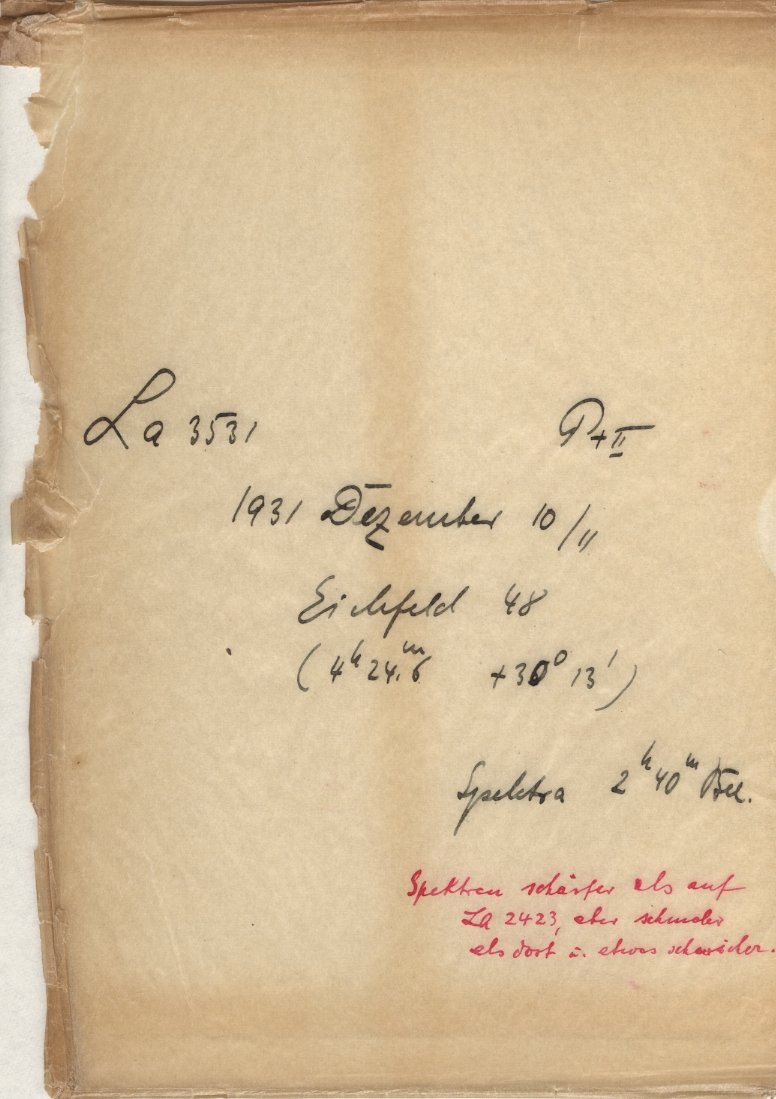 La 3531 P+II
1931 Dezember 10/11
Eichfeld 48
(4h 24.m6 +30° 13')
Spektra 2h 40m Bel.
Spektren schärfer als auf
La 2423, aber schmaler
als dort u. etwas schwächer.